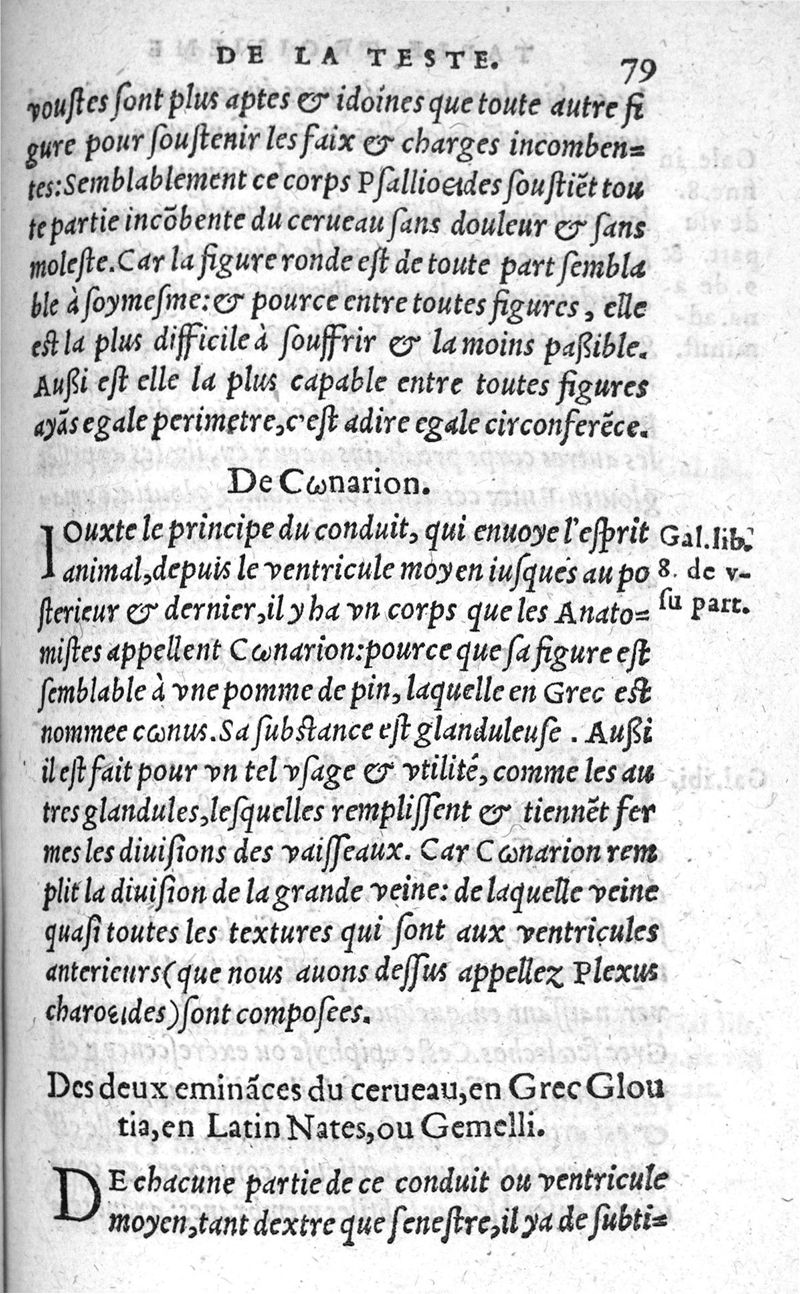 DE LA TESTE. 79
vouſtes ſont plus aptes & idoines que toute autre fi
gure pour ſouſtenir les faix & charges incomben=
tes: Semblablement ce corps Pſallioeides ſouſtiẽt tou
te partie incõbente du cerueau ſans douleur & ſans
moleſte. Car la figure ronde eſt de toute part ſembla
ble à ſoymeſme: & pource entre toutes figures, elle
eſt la plus difficile à ſouffrir & la moins paßible.
Außi eſt elle la plus capable entre toutes figures
ayãs egale perimetre, c'eſt adire egale circonferẽce.
De Cωnarion.
IOuxte le principe du conduit, qui enuoye l'eſprit
animal, depuis le ventricule moyen iuſques au po
ſterieur & dernier, il y ha vn corps que les Anato=
miſtes appellent Cωnarion: pource que ſa figure eſt
ſemblable à vne pomme de pin, laquelle en Grec eſt
nommee cωnus. Sa ſubſtance eſt glanduleuſe. Außi
il eſt fait pour vn tel vſage & vtilité, comme les au
tres glandules, leſquelles rempliſſent & tiennẽt fer
mes les diuiſions des vaiſſeaux. Car Cωnarion rem
plit la diuiſion de la grande veine: de laquelle veine
quaſi toutes les textures qui ſont aux ventricules
anterieurs (que nous auons deſſus appellez Plexus
charoeides) ſont compoſees.
Gal. lib.
8. de v-
ſu part.
Des deux eminãces du cerueau, en Grec Glou
tia, en Latin Nates, ou Gemelli.
DE chacune partie de ce conduit ou ventricule
moyen, tant dextre que ſeneſtre, il ya de ſubti=